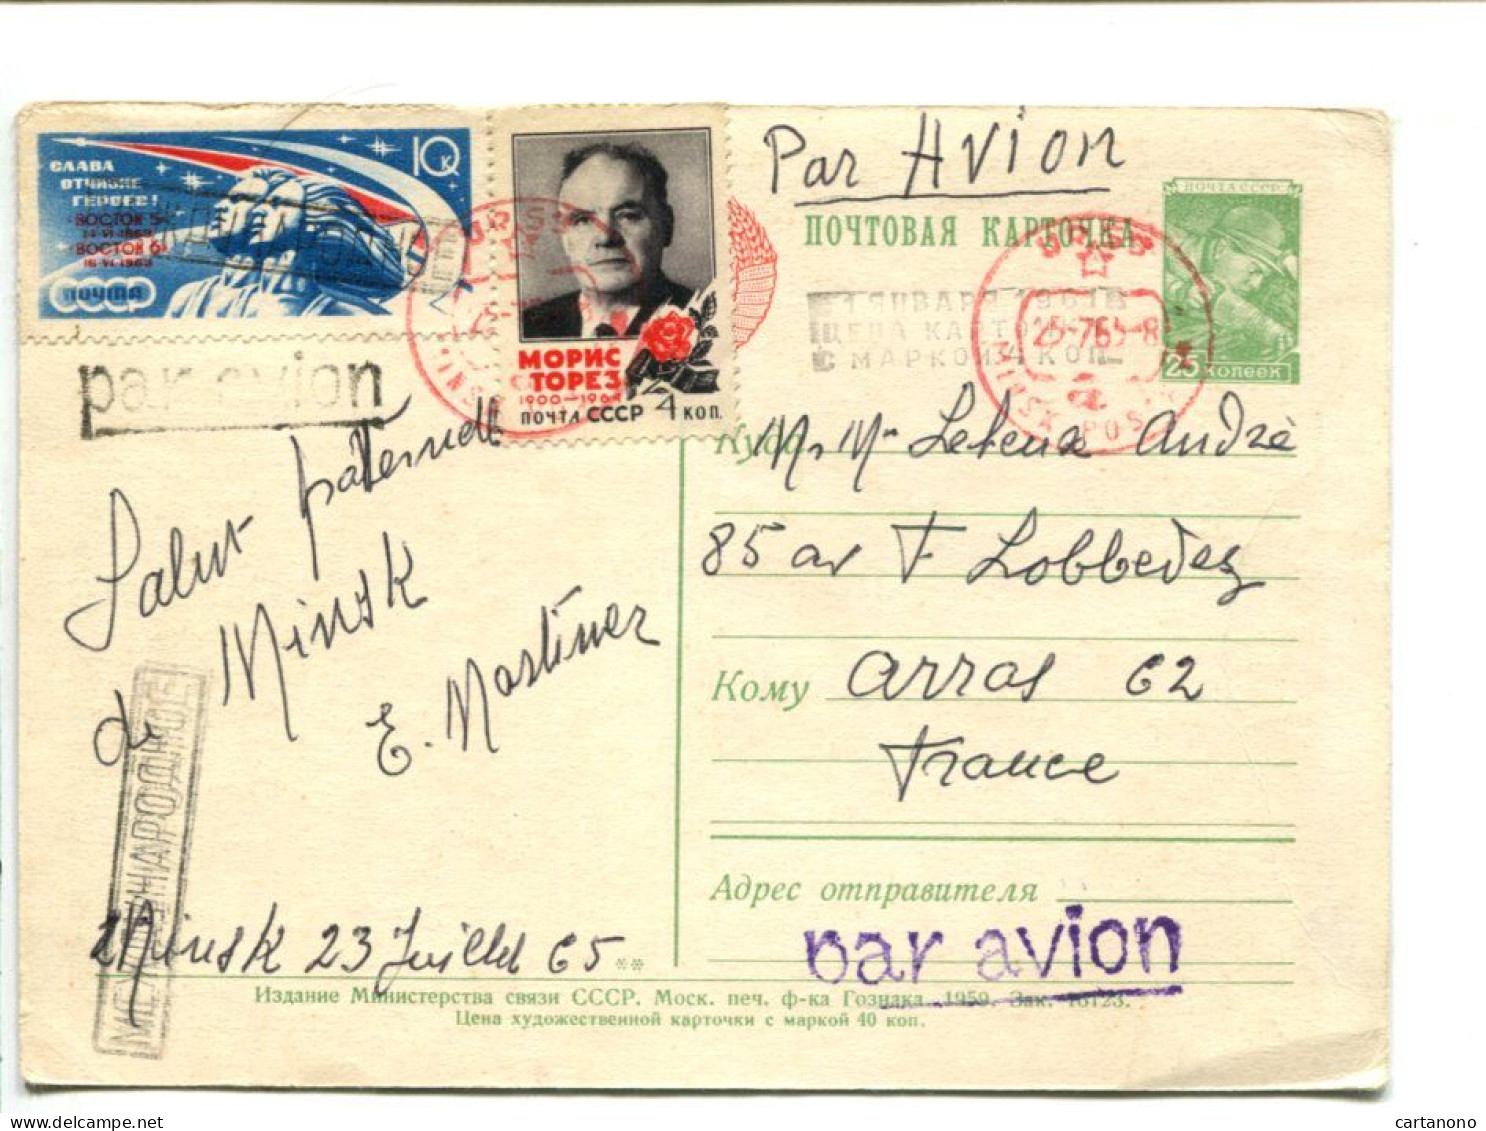 Par Avion
СЛАВА
ОТЧИЗНЕ
ГЕРОЕВ!
10 к
"ВОСТОК 5"
14-VI-1963
"ВОСТОК 6"
16-VI-1963
ПОЧТА
СССР
МОРИС
ТОРЕЗ
1900—1964
ПОЧТА СССР 4 коп.
ПОЧТОВАЯ КАРТОЧКА
ПОЧТА СССР
25 КОПЕЕК
С 1 ЯНВАРЯ 1961 г.
ЦЕНА КАРТОЧКИ
С МАРКОЙ 4 КОП.
25-7.65-8
MINSK POSTE
par avion
Salut fraternell
de Minsk
E. Martinez
МЕЖДУНАРОДНОЕ
Minsk 23 Juillet 65
Куда Mr Mm Leleux André
85 av F Lobbedez
Кому arras 62
France
Адрес отправителя
par avion
Издание Министерства связи СССР. Моск. печ. ф-ка Гознака. 1959. Зак. 16123.
Цена художественной карточки с маркой 40 коп.
cartanono